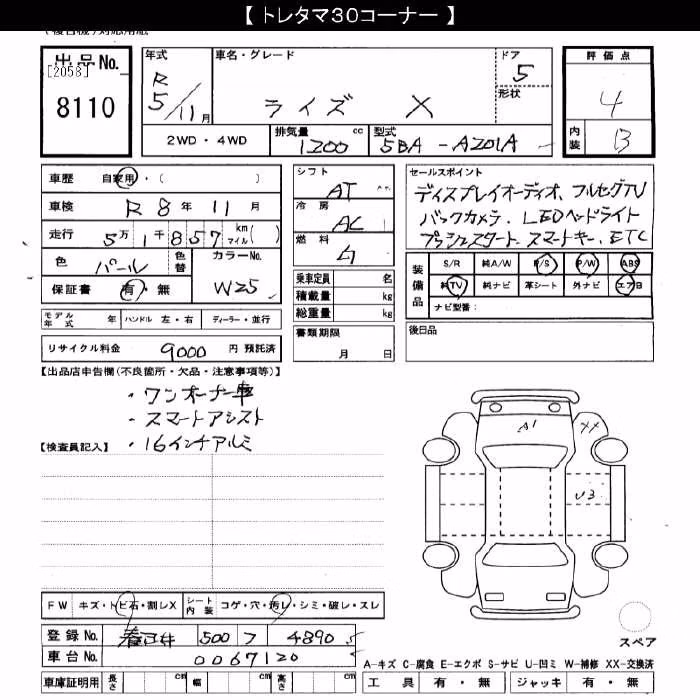 【 トレタマ30コーナー 】
出品No.
[2058]
8110
年式
R
5/11月
車名・グレード
ライズ X
ドア
5
形状
評価点
4
内装
B
2WD・4WD
排気量 cc
1200
型式
5BA-A201A
車歴 自家用・( )
車検 R 8年 11月
走行 5万1千857 km マイル( )
色 パール
色替
カラーNo.
W25
保証書 有・無
モデル年式 年 ハンドル 左・右 ディーラー・並行
リサイクル料金 9000 円 預託済
シフト
AT
冷房
AC
燃料
ガ
乗車定員 名
積載量 kg
総重量 kg
書類期限
月 日
セールスポイント
ディスプレイオーディオ、フルセグTV
バックカメラ、LEDヘッドライト
プッシュスタート、スマートキー、ETC
装備品
S/R 純A/W P/S P/W ABS
純TV 純ナビ 革シート 外ナビ エアB
ナビ型番:
後日品
【出品店申告欄(不良箇所・欠品・注意事項等)】
・ワンオーナー車
・スマートアシスト
・16インチアルミ
【検査員記入】
A1
XX
U3
FW キズ・トビ石・割レX
シート内装 コゲ・穴・汚レ・シミ・破レ・スレ
登録No. 春日井 500 フ 4890
車台No. 0067120
車庫証明用 長さ cm 幅 cm 高さ cm
スペア
A-キズ C-腐食 E-エクボ S-サビ U-凹ミ W-補修 XX-交換済
工具 有・無 ジャッキ 有・無